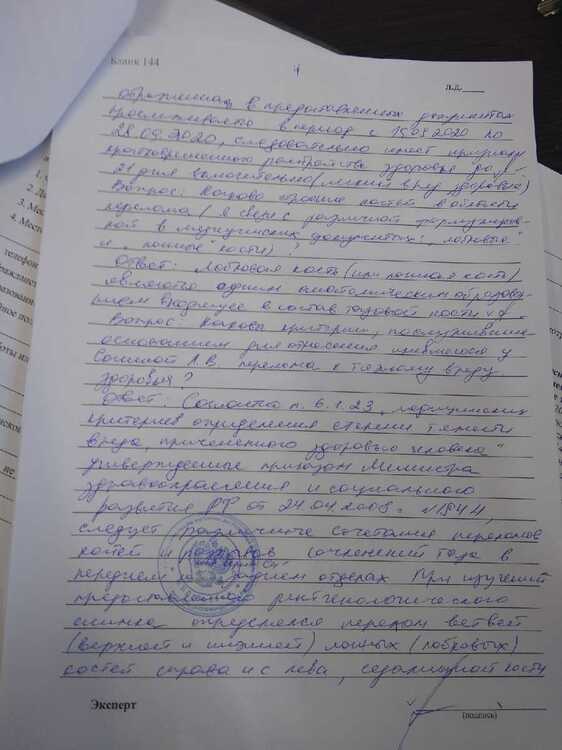 Бланк 144
4
л.д.
в предоставленных документах
просматривается в период с 15.09.2020 по
28.09.2020, следовательно имеет признаки
кратковременного расстройства здоровья до
21 дня включительно (легкий вред здоровью)
Вопрос: Каково название костей в области
перелома (в связи с различной формулиров-
кой в медицинских документах: "лобковые"
и "лонные" кости)?
Ответ: Лобковая кость (или лонная кость)
являются одним анатомическим образова-
нием входящее в состав тазовой кости
Вопрос: Каковы критерии, послужившие
основанием для отнесения имевшегося у
Л.В. перелома к тяжкому вреду
здоровья?
Ответ: Согласно п. 6.1.23 "медицинских
критериев определения степени тяжести
вреда, причиненного здоровью человека"
утвержденные приказом Министра
здравоохранения и социального
развития РФ от 24.04.2008г. №194н,
следует различные сочетания переломов
костей и разрывов сочленений таза в
переднем и заднем отделах. При изучении
предоставленного рентгенологического
снимка определялся перелом ветвей
(верхней и нижней) лонных (лобковых)
костей справа и слева, седалищной кости
Эксперт
(подпись)